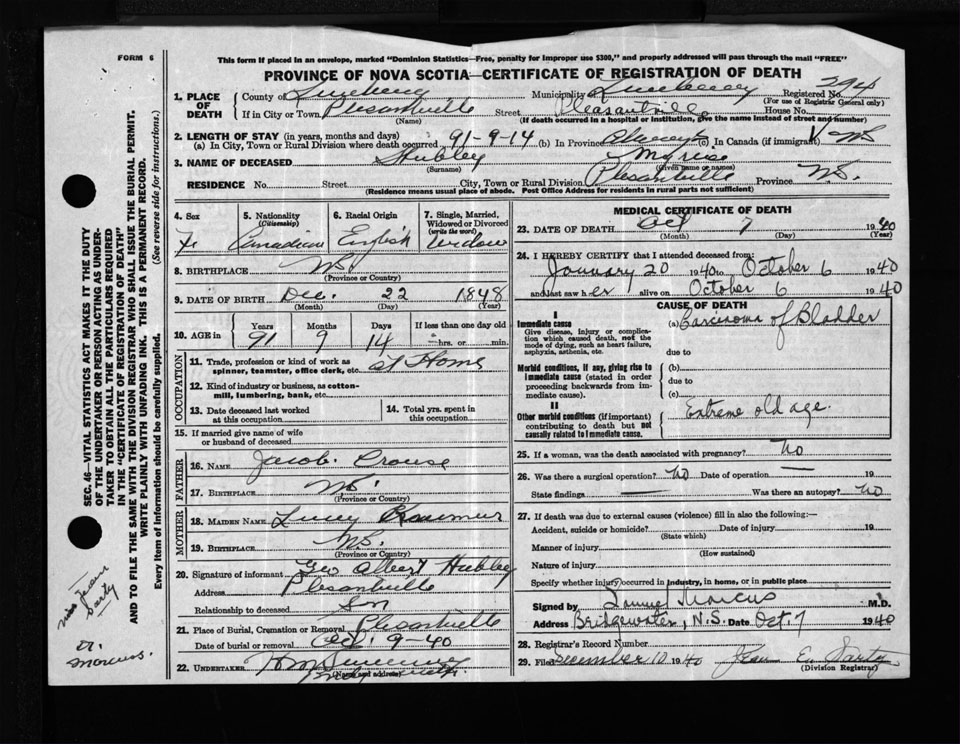 FORM 6
This form if placed in an envelope, marked "Dominion Statistics—Free, penalty for improper use $300," and properly addressed will pass through the mail "FREE"
PROVINCE OF NOVA SCOTIA—CERTIFICATE OF REGISTRATION OF DEATH
1. PLACE OF DEATH
County of Lunenburg Municipality Lunenburg Registered No. 394
(For use of Registrar General only)
If in City or Town Plesantville Street Pleasantville House No.
(Name) (If death occurred in a hospital or institution, give the name instead of street and number)
2. LENGTH OF STAY (in years, months and days)
(a) In City, Town or Rural Division where death occurred 91-9-14 (b) In Province Always (c) In Canada (if immigrant) NS
3. NAME OF DECEASED Hubley
(Surname) (Given name or names)
RESIDENCE No. Street City, Town or Rural Division Plesantville Province N.S.
(Residence means usual place of abode. Post Office Address for residents in rural parts not sufficient)
4. Sex 5. Nationality (Citizenship) 6. Racial Origin 7. Single, Married, Widowed or Divorced (write the word)
Fe Canadian English Widow
8. BIRTHPLACE N.S.
(Province or Country)
9. DATE OF BIRTH Dec. 22 1848
(Month) (Day) (Year)
10. AGE in Years Months Days If less than one day old
91 9 14 hrs. or min.
OCCUPATION
11. Trade, profession or kind of work as spinner, teamster, office clerk, etc. at Home
12. Kind of industry or business, as cotton-mill, lumbering, bank, etc.
13. Date deceased last worked at this occupation
14. Total yrs. spent in this occupation
15. If married give name of wife or husband of deceased
FATHER
16. NAME Jacob. Crouse
17. BIRTHPLACE N.S.
(Province or Country)
MOTHER
18. MAIDEN NAME Lucy
19. BIRTHPLACE N.S.
(Province or Country)
20. Signature of informant Geo Albert Hubley
Address Plesantville
Relationship to deceased Son
21. Place of Burial, Cremation or Removal Plesantville
Date of burial or removal Oct. 9-40
22. UNDERTAKER
(Name and address)
MEDICAL CERTIFICATE OF DEATH
23. DATE OF DEATH Oct 7 1940
(Month) (Day) (Year)
24. I HEREBY CERTIFY that I attended deceased from:
January 20 1940 to October 6 1940
and last saw her alive on October 6 1940
CAUSE OF DEATH
I
Immediate cause
Give disease, injury or complication which caused death, not the mode of dying, such as heart failure, asphyxia, asthenia, etc.
(a) Carcinoma of Bladder
due to
Morbid conditions, if any, giving rise to immediate cause (stated in order proceeding backwards from immediate cause).
(b)
due to
(c)
II
Other morbid conditions (if important) contributing to death but not causally related to immediate cause.
Extreme old age.
25. If a woman, was the death associated with pregnancy? No
26. Was there a surgical operation? No Date of operation — 19
State findings — Was there an autopsy? No
27. If death was due to external causes (violence) fill in also the following:—
Accident, suicide or homicide? Date of injury 19
(State which)
Manner of injury
(How sustained)
Nature of injury
Specify whether injury occurred in industry, in home, or in public place
Signed by Samuel Marcus M.D.
Address Bridgewater, N.S. Date Oct. 7 1940
28. Registrar's Record Number
29. Filed December 10 1940 Jean E. Sarty
(Division Registrar)
SEC. 46—VITAL STATISTICS ACT MAKES IT THE DUTY
OF THE UNDERTAKER OR PERSON ACTING AS UNDER-
TAKER TO OBTAIN ALL THE PARTICULARS REQUIRED
IN THE "CERTIFICATE OF REGISTRATION OF DEATH"
AND TO FILE THE SAME WITH THE DIVISION REGISTRAR WHO SHALL ISSUE THE BURIAL PERMIT.
WRITE PLAINLY WITH UNFADING INK. THIS IS A PERMANENT RECORD.
Every item of information should be carefully supplied.
(See reverse side for instructions.)
Miss Jean
Sarty
Dr.
Marcus.